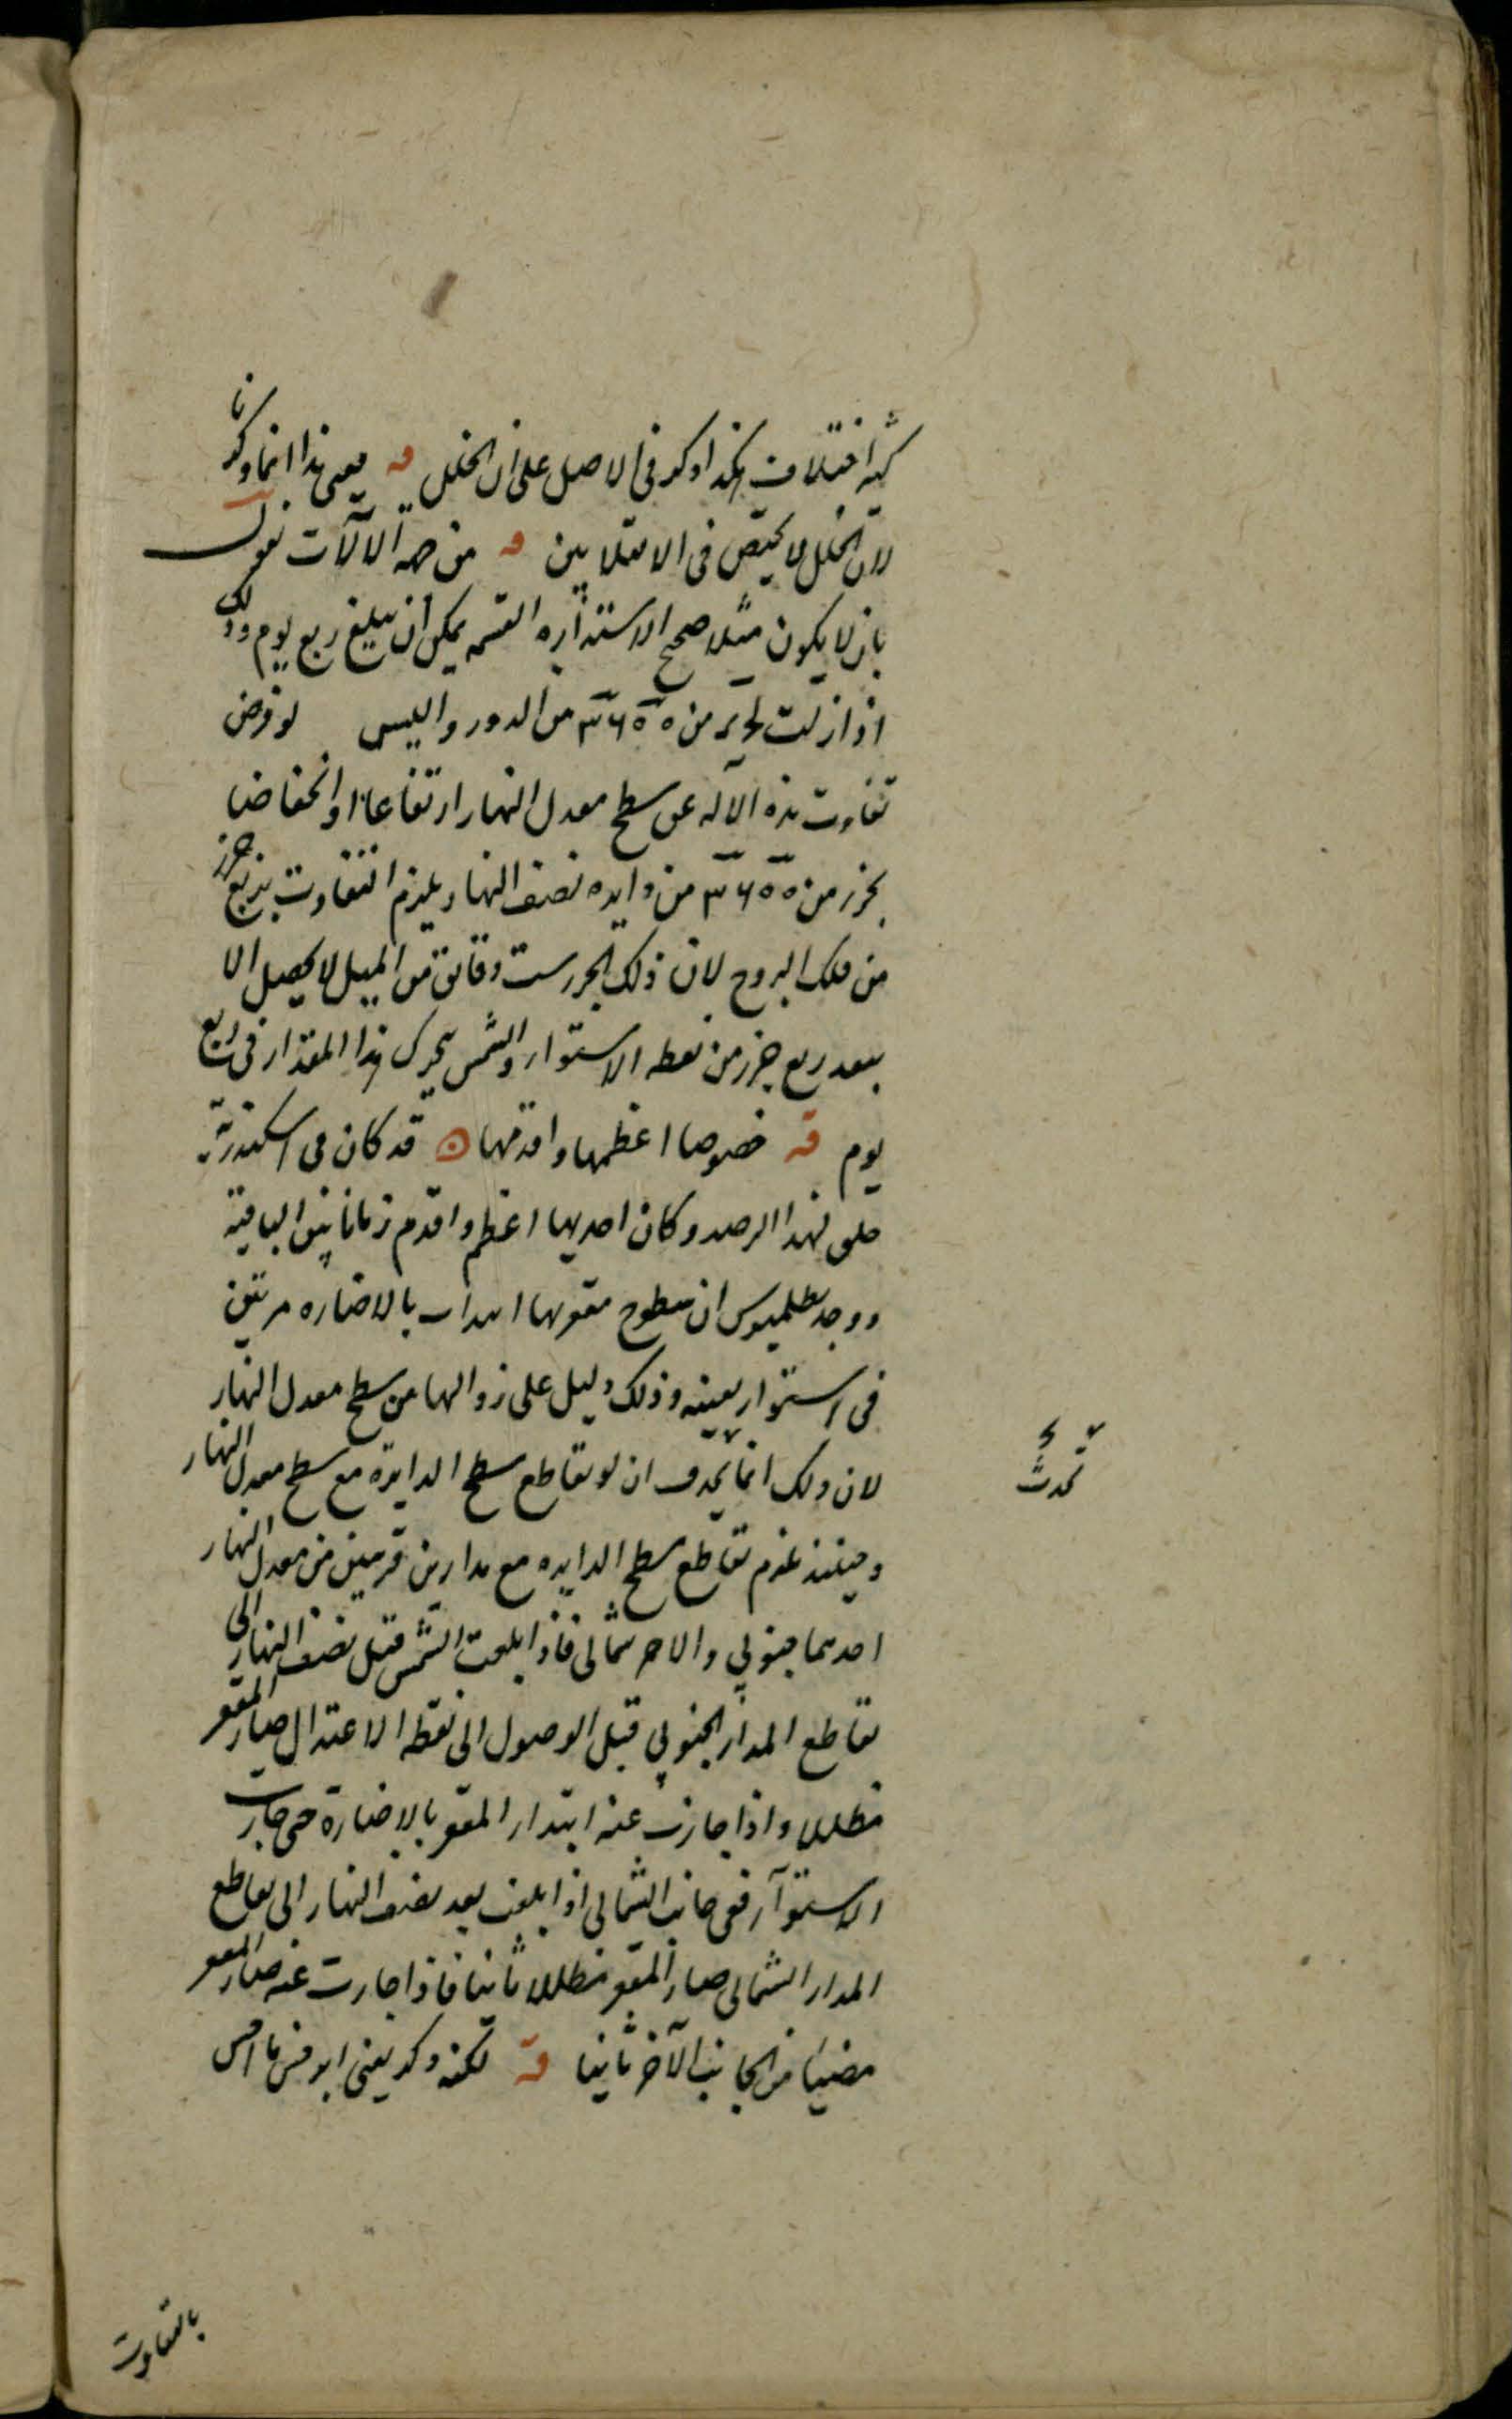 كثيه اختلاف هكذا وكر فى الاصل على ان الخلل قه يعنى هذا انما ذكرنا
لان الخلل لا يختص فى الانقلابين قه من جهة الآلات نقول
بان لا يكون مثلا صحيح الاستداره القسمه يمكن ان يبلغ ربع يوم وذلك
اذا زلت بجزء من ٣٦٥٥ من الدور واليس لو فرض
تفاوت هذه الآله عن سطح معدل النهار ارتفاعا او انخفاضا
بجزء من ٣٦٥٥ من دايره نصف النهار يلزم التفاوت بربع جزء
من فلك البروج لان ذلك الجزء ست دقائق من الميل لا يحصل الا
ببعد ربع جزء من نقطه الاستواء والشمس يتحرك هذا المقدار فى ربع
يوم قه خصوصا اعظمها واقدمها قد كان فى اسكندريه
حلق لهذا الرصد وكان احديها اعظم واقدم زمانا من الباقية
ووجد بطلميوس ان سطوح مقعرها ابتدأت بالاضاره مرتين
فى استواء بعينه وذلك دليل على زوالها من سطح معدل النهار
لان ذلك انما يحدث ان لو تقاطع سطح الدايرة مع سطح معدل النهار
تحدث
وحينئذ يلزم تقاطع سطح الدايره مع مدارين قريبين من معدل النهار
احدهما جنوبي والاخر شمالى فاذا بلغت الشمس قبل نصف النهار الى
تقاطع المدار الجنوبي قبل الوصول الى نقطه الاعتدال صار المقعر
مظللا واذا جازت عنه ابتدا المقعر بالاضارة حتى جازت
الاستوآء ففى جانب الشمالى اذا بلغت بعد نصف النهار الى تقاطع
المدار الشمالى صار المقعر مظللا ثانيا فاذا جازت عنه صار المقعر
مضيئا من الجانب الآخر ثانيا قه لكنه وكد يعنى ابرخس ما احس
بالتفاوت